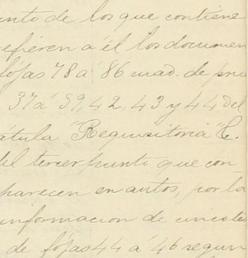 unto de los que contiene
refieren a él los documen
fojas 78 a 86 cuad. de pru
37 a 39, 42, 43 y 44 del
átula "Requisitoria C.
del tercer punto que con
parecen en autos, por la
información de
de fojas 44 a 46